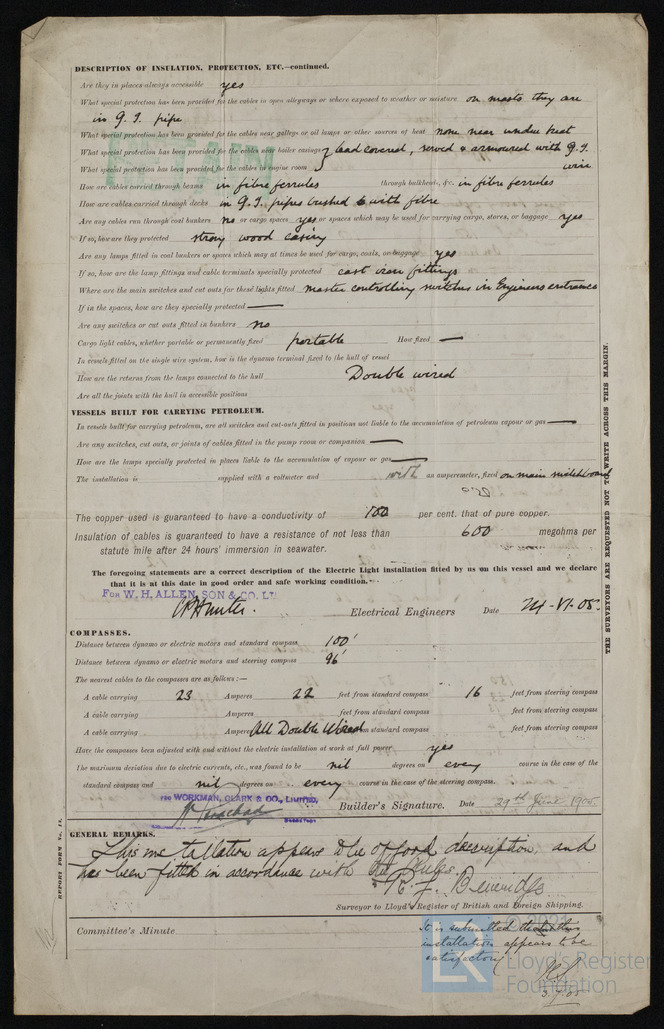 DESCRIPTION OF INSULATION, PROTECTION, ETC.—continued.
Are they in places always accessible yes
What special protection has been provided for the cables in open alleyways or where exposed to weather or moisture on masts they are
in G. I. pipe
What special protection has been provided for the cables near galleys or oil lamps or other sources of heat none near undue heat
What special protection has been provided for the cables near boiler casings } lead covered, served & armoured with G. I.
What special protection has been provided for the cables in engine room wire
How are cables carried through beams in fibre ferrules through bulkheads, &c. in fibre ferrules
How are cables carried through decks in G. I. pipes bushed with fibre
Are any cables run through coal bunkers no or cargo spaces yes or spaces which may be used for carrying cargo, stores, or baggage yes
If so, how are they protected strong wood casing
Are any lamps fitted in coal bunkers or spaces which may at times be used for cargo, coals, or baggage yes
If so, how are the lamp fittings and cable terminals specially protected cast iron fittings
Where are the main switches and cut outs for these lights fitted Master controlling switches in Engineers entrance
If in the spaces, how are they specially protected —
Are any switches or cut outs fitted in bunkers no
Cargo light cables, whether portable or permanently fixed portable How fixed —
In vessels fitted on the single wire system, how is the dynamo terminal fixed to the hull of vessel
How are the returns from the lamps connected to the hull Double wired
Are all the joints with the hull in accessible positions
VESSELS BUILT FOR CARRYING PETROLEUM.
In vessels built for carrying petroleum, are all switches and cut-outs fitted in positions not liable to the accumulation of petroleum vapour or gas —
Are any switches, cut outs, or joints of cables fitted in the pump room or companion —
How are the lamps specially protected in places liable to the accumulation of vapour or gas —
The installation is supplied with a voltmeter and with an amperemeter, fixed on main switchboard
The copper used is guaranteed to have a conductivity of 100 per cent. that of pure copper.
Insulation of cables is guaranteed to have a resistance of not less than 600 megohms per
statute mile after 24 hours' immersion in seawater.
The foregoing statements are a correct description of the Electric Light installation fitted by us on this vessel and we declare
that it is at this date in good order and safe working condition.
FOR W. H. ALLEN, SON & CO. LTD
Electrical Engineers Date 24-VI-05.
COMPASSES.
Distance between dynamo or electric motors and standard compass 100'
Distance between dynamo or electric motors and steering compass 96'
The nearest cables to the compasses are as follows:—
A cable carrying 23 Amperes 22 feet from standard compass 16 feet from steering compass
A cable carrying Amperes feet from standard compass feet from steering compass
A cable carrying Amperes All Double Wired from standard compass feet from steering compass
Have the compasses been adjusted with and without the electric installation at work at full power yes
The maximum deviation due to electric currents, etc., was found to be nil degrees on every course in the case of the
standard compass and nil degrees on every course in the case of the steering compass.
FOR WORKMAN, CLARK & CO., LIMITED,
SECRETARY
Builder's Signature. Date 29th June 1905.
GENERAL REMARKS.
This installation appears to be of good description, and
has been fitted in accordance with the Rules.
R. F. Beveridge
Surveyor to Lloyd's Register of British and Foreign Shipping.
Committee's Minute
It is submitted that this
installation appears to be
satisfactory
3.7.05
THE SURVEYORS ARE REQUESTED NOT TO WRITE ACROSS THIS MARGIN.
REPORT FORM No. 14.
Lloyd's Register
Foundation